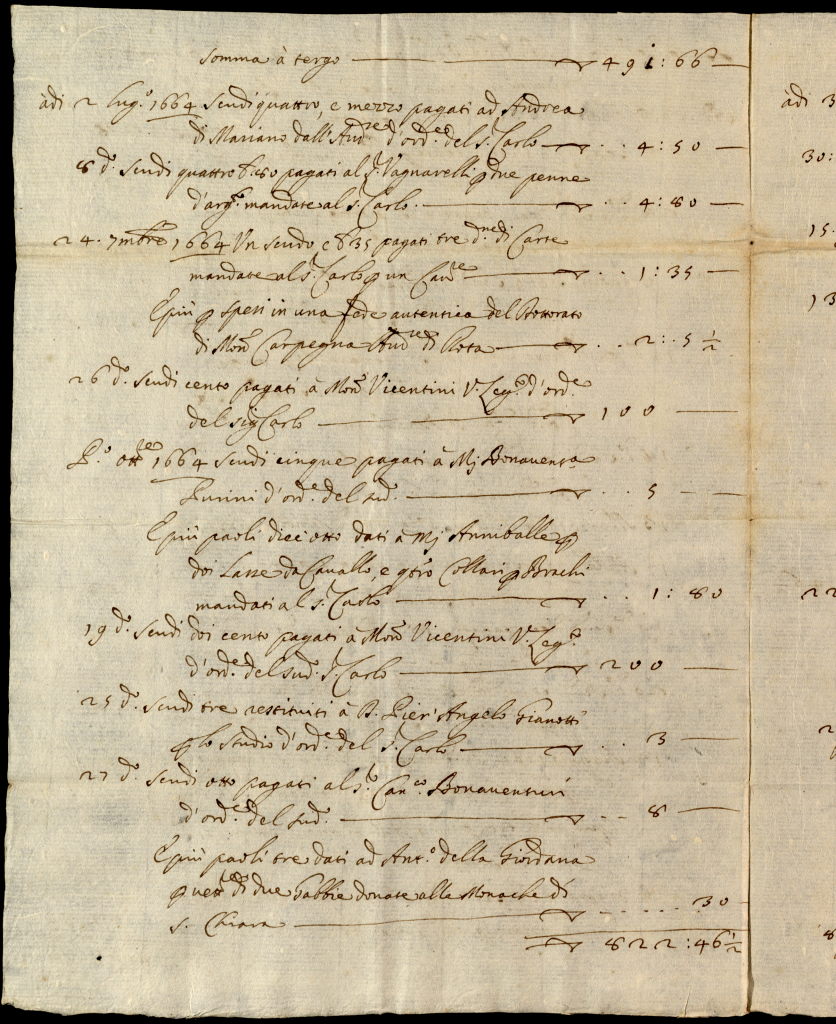 somma à tergo ——— 491:66 —
àdi 2 lug.o 1664 scudi quattro, e mezzo pagati ad Andrea
di Mariano dall'Aud.re d'ord.e del s.r Carlo — .. 4:50 —
8 d.o scudi quattro b 80 pagati al s.r Vagnarelli p due penne
d'arg.o mandate al s.r Carlo. — .. 4:80 —
24. 7mbre 1664 Un scudo e b 35 pagati tre d.ne di Carte
mandate al s.r Carlo p un Cav.re — .. 1:35 —
E più p spesi in una fede autentica del Dottorato
di Mons.r Carpegna Aud.re di Rota — .. 2:5 1/2
26 d.o scudi cento pagati à Mons.r Vicentini V.Leg.to d'ord.e
del sig Carlo — 100 —
P.o ott.re 1664 scudi cinque pagati à Mj Bonaventa
Purini d'ord.e del sud.o — .. 5 —
E più paoli dieci otto dati à Mj Anniballe p
doi Lasse da Cavallo, e q.tro Collari p Brachi
mandati al s.r Carlo — .. 1:80
19 d.o scudi doi cento pagati à Mons.r Vicentini V.Leg.to
d'ord.e del sud.o s.r Carlo — 200 —
25 d.o scudi tre restituiti à D. Pier' Angelo Gianotti
p lo studio d'ord.e del s.r Carlo — .. 3 —
27 d.o scudi otto pagati al s.r Can.co Bonaventini
d'ord.e del sud.o — .. 8 —
E più paoli tre dati ad Ant.o della Giordana
p vett.a di due Gabbie donate alle Monache di
s. Chiara — ..... 30
822:46 1/2
àdi 3
30:
15.
13
22
2
8